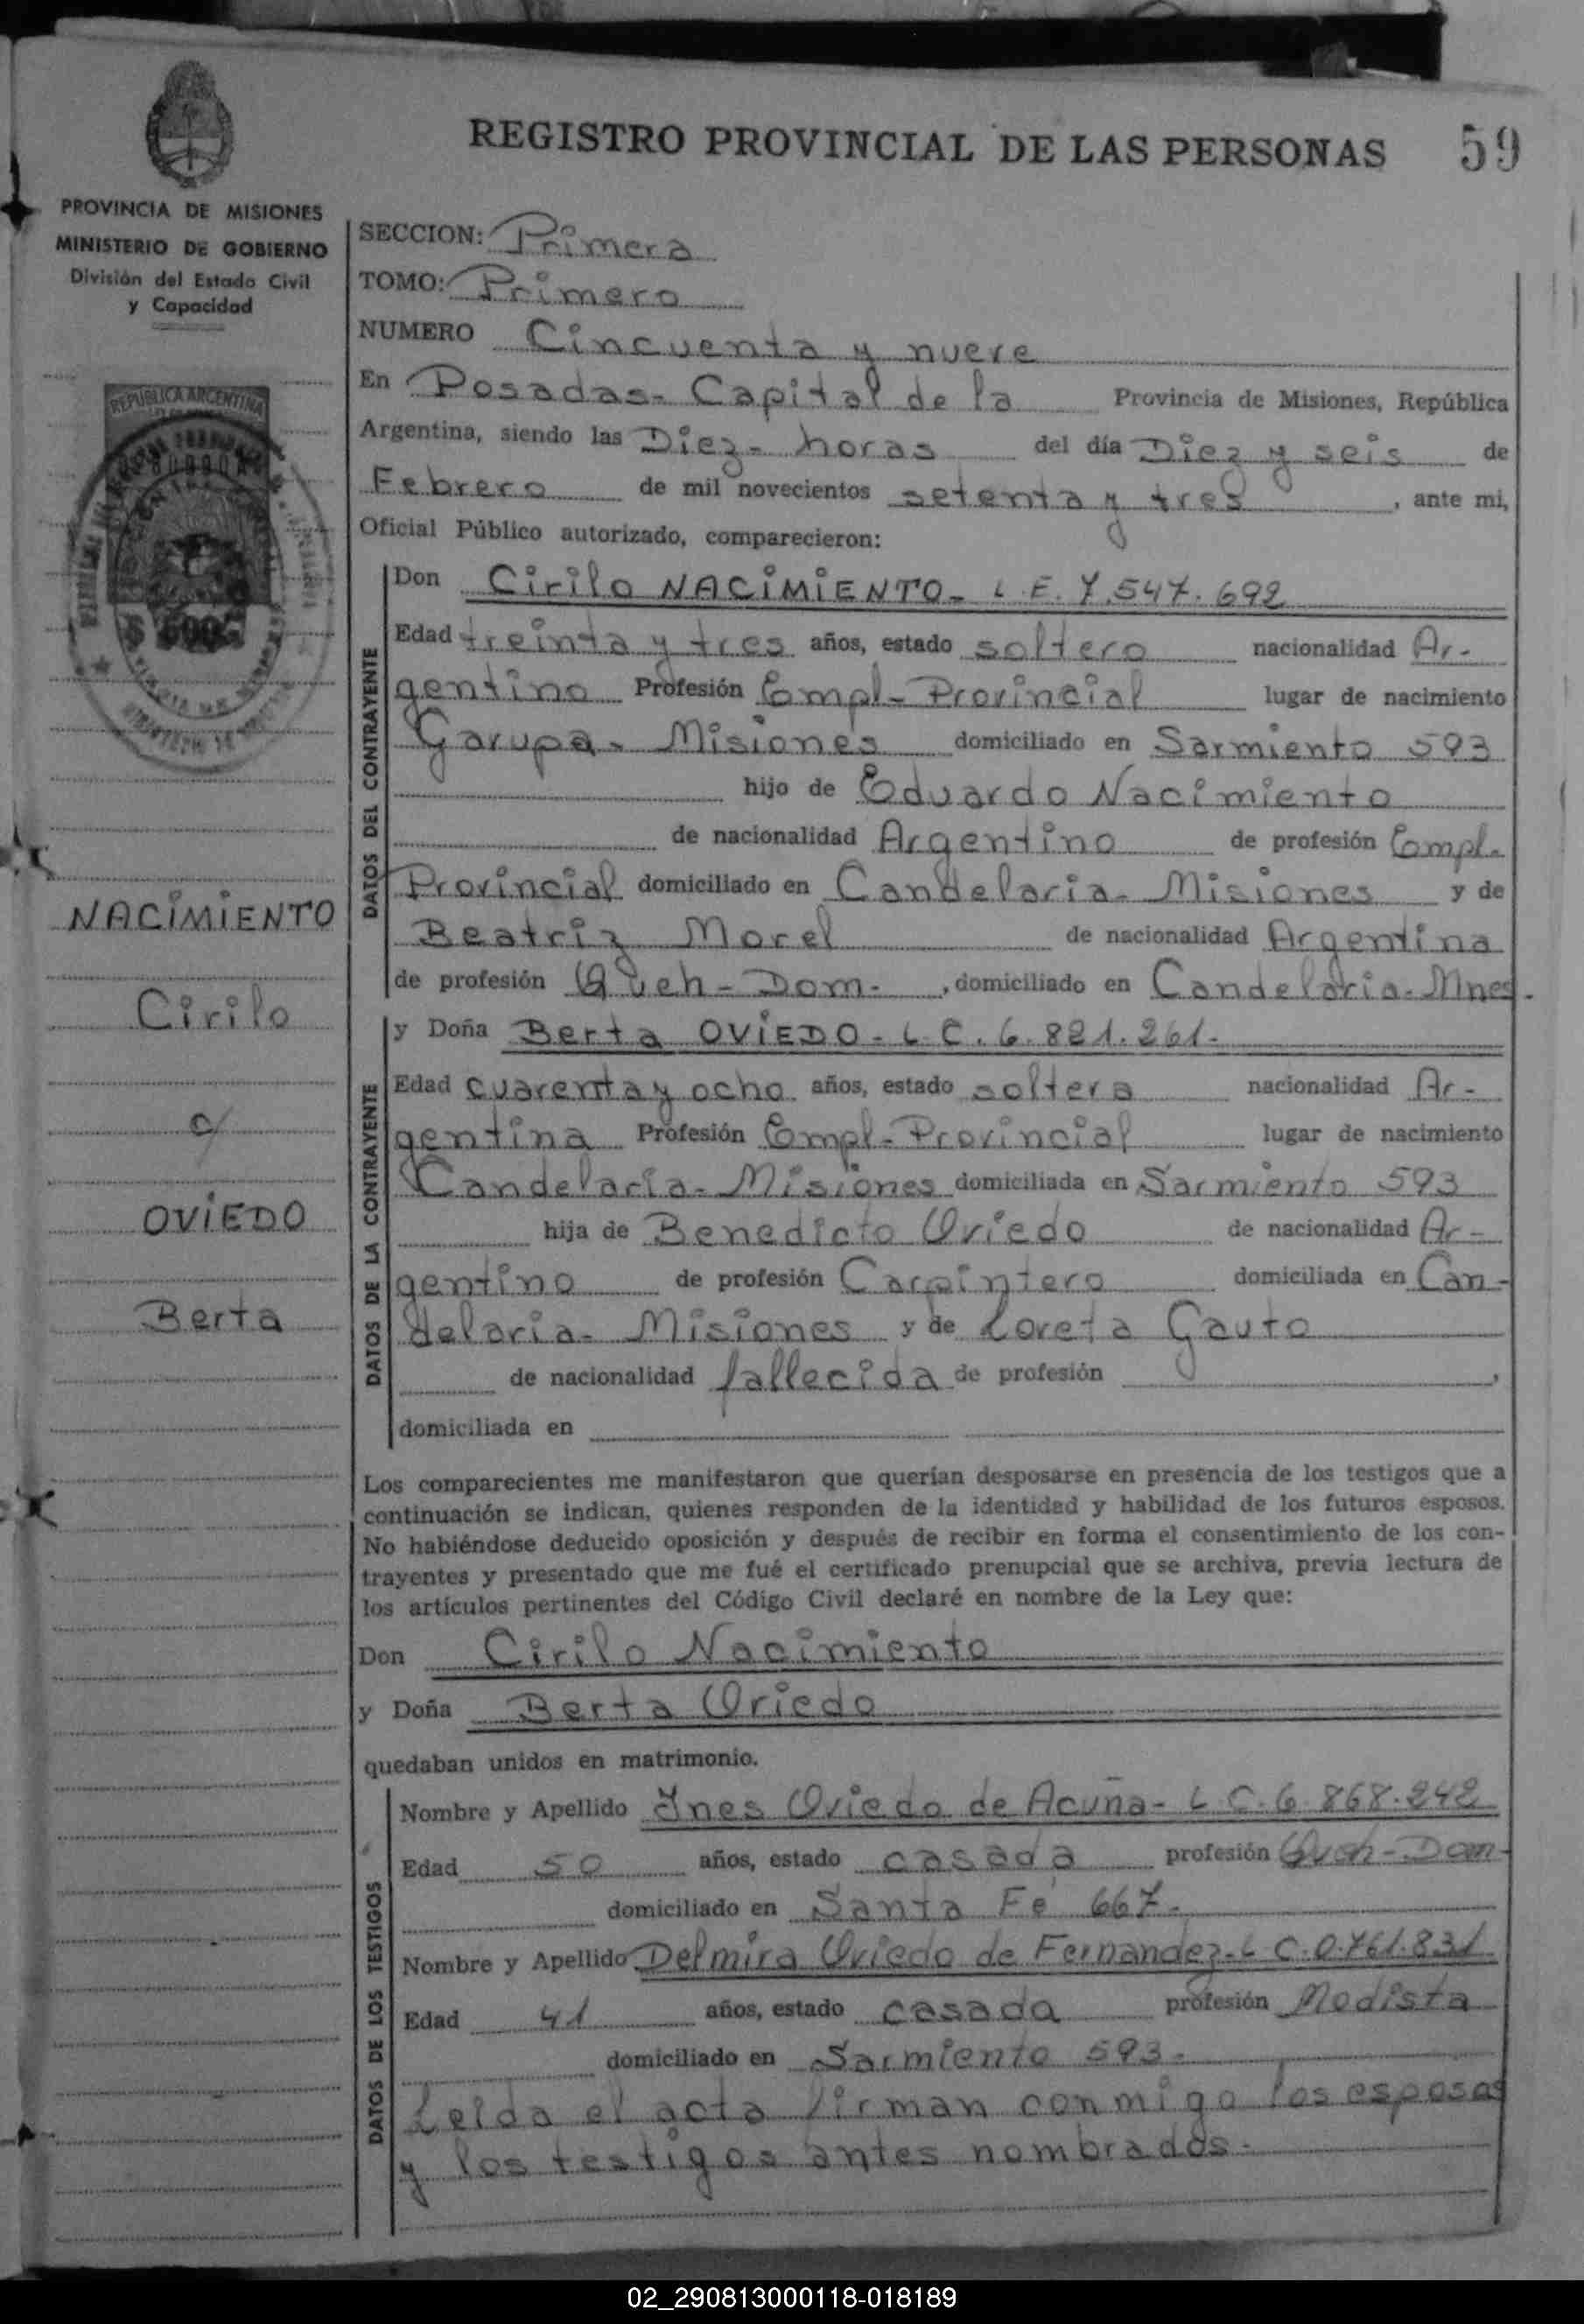 REGISTRO PROVINCIAL DE LAS PERSONAS 59
PROVINCIA DE MISIONES
MINISTERIO DE GOBIERNO
División del Estado Civil
y Capacidad
REPUBLICA ARGENTINA
NACIMIENTO
Cirilo
c/
OVIEDO
Berta
SECCION: Primera
TOMO: Primero
NUMERO Cincuenta y nueve
En Posadas- Capital de la Provincia de Misiones, República
Argentina, siendo las Diez- horas del día Diez y seis de
Febrero de mil novecientos setenta y tres, ante mi,
Oficial Público autorizado, comparecieron:
DATOS DEL CONTRAYENTE
Don Cirilo NACIMIENTO- L.E. 7.547.692
Edad treinta y tres años, estado soltero nacionalidad Ar-
gentino Profesión Empl- Provincial lugar de nacimiento
Garupa- Misiones domiciliado en Sarmiento 593
hijo de Eduardo Nacimiento
de nacionalidad Argentino de profesión Empl-
Provincial domiciliado en Candelaria- Misiones y de
Beatriz Morel de nacionalidad Argentina
de profesión Queh- Dom-, domiciliado en Candelaria- Mnes.
DATOS DE LA CONTRAYENTE
y Doña Berta OVIEDO- L.C. 6.821.261-
Edad cuarenta y ocho años, estado soltera nacionalidad Ar-
gentina Profesión Empl- Provincial lugar de nacimiento
Candelaria- Misiones domiciliada en Sarmiento 593
hija de Benedicto Oviedo de nacionalidad Ar-
gentino de profesión Carpintero domiciliada en Can-
delaria- Misiones y de Loreta Gauto
de nacionalidad fallecida de profesión ,
domiciliada en
Los comparecientes me manifestaron que querían desposarse en presencia de los testigos que a
continuación se indican, quienes responden de la identidad y habilidad de los futuros esposos.
No habiéndose deducido oposición y después de recibir en forma el consentimiento de los con-
trayentes y presentado que me fué el certificado prenupcial que se archiva, previa lectura de
los artículos pertinentes del Código Civil declaré en nombre de la Ley que:
Don Cirilo Nacimiento
y Doña Berta Oviedo
quedaban unidos en matrimonio.
DATOS DE LOS TESTIGOS
Nombre y Apellido Ines Oviedo de Acuña- L.C. 6.868.242
Edad 50 años, estado casada profesión Queh- Dom-
domiciliado en Santa Fé 667-
Nombre y Apellido Delmira Oviedo de Fernandez- L.C. 0.761.831
Edad 41 años, estado casada profesión Modista
domiciliado en Sarmiento 593-
Leida el acta firman conmigo los esposos
y los testigos antes nombrados-
02_290813000118-018189